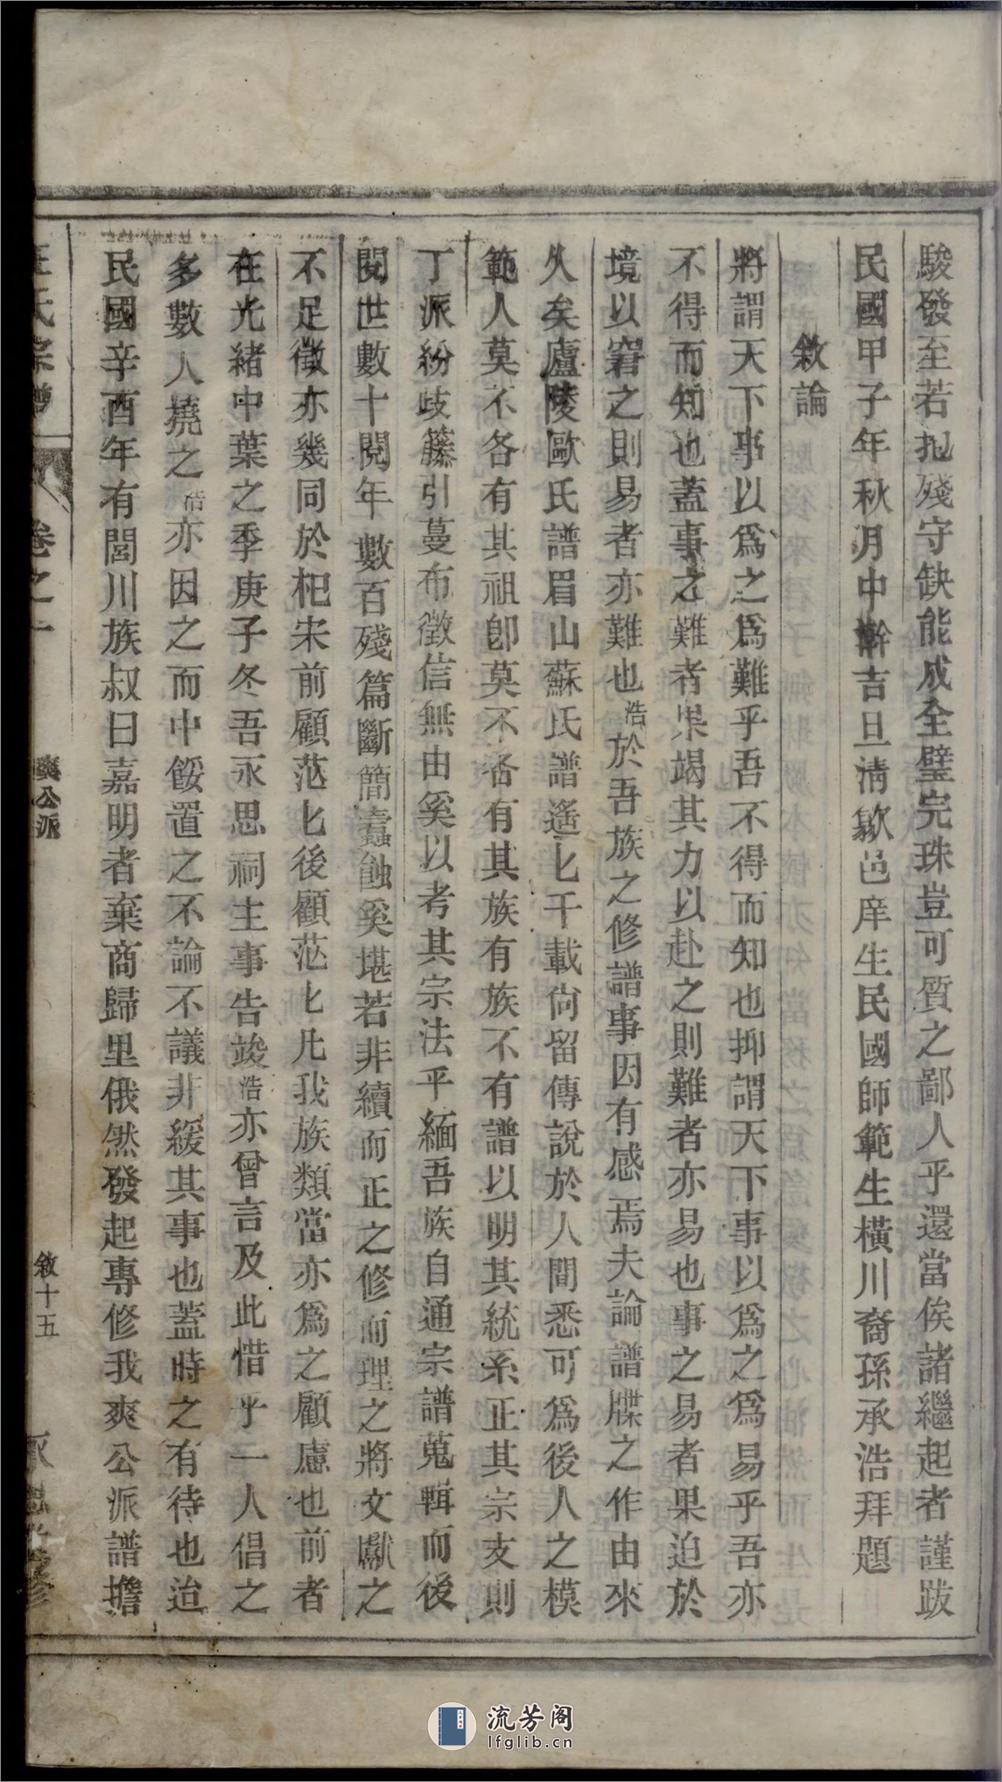 駿發至若抱殘守缺能成全璧完珠豈可質之鄙人乎還當俟諸繼起者謹跋
民國甲子年秋月中澣吉旦清歙邑庠生民國師範生橫川裔孫承浩拜題
敘論
將謂天下事以爲之爲難乎吾不得而知也抑謂天下事以爲之爲易乎吾亦
不得而知也蓋事之難者果竭其力以赴之則難者亦易也事之易者果迫於
境以窘之則易者亦難也浩於吾族之修譜事因有感焉夫論譜牒之作由來
久矣廬陵歐氏譜眉山蘇氏譜遙匕千載尙留傳說於人間悉可爲後人之模
範人莫不各有其祖卽莫不各有其族有族不有譜以明其統系正其宗支則
丁派紛歧藤引蔓布徵信無由奚以考其宗法乎緬吾族自通宗譜蒐輯而後
閱世數十閱年數百殘篇斷簡蠹蝕奚堪若非續而正之修而理之將文獻之
不足徵亦幾同於杞宋前顧茫匕後顧茫匕凡我族類當亦爲之顧慮也前者
在光緒中葉之季庚子冬吾永思祠主事告竣浩亦曾言及此惜乎一人倡之
多數人撓之浩亦因之而中餒置之不論不議非緩其事也蓋時之有待也迨
民國辛酉年有閭川族叔曰嘉明者棄商歸里俄然發起專修我爽公派譜擔
氏宗譜
卷之一
爽公派
敘十五
流芳阁
lfglib.cn